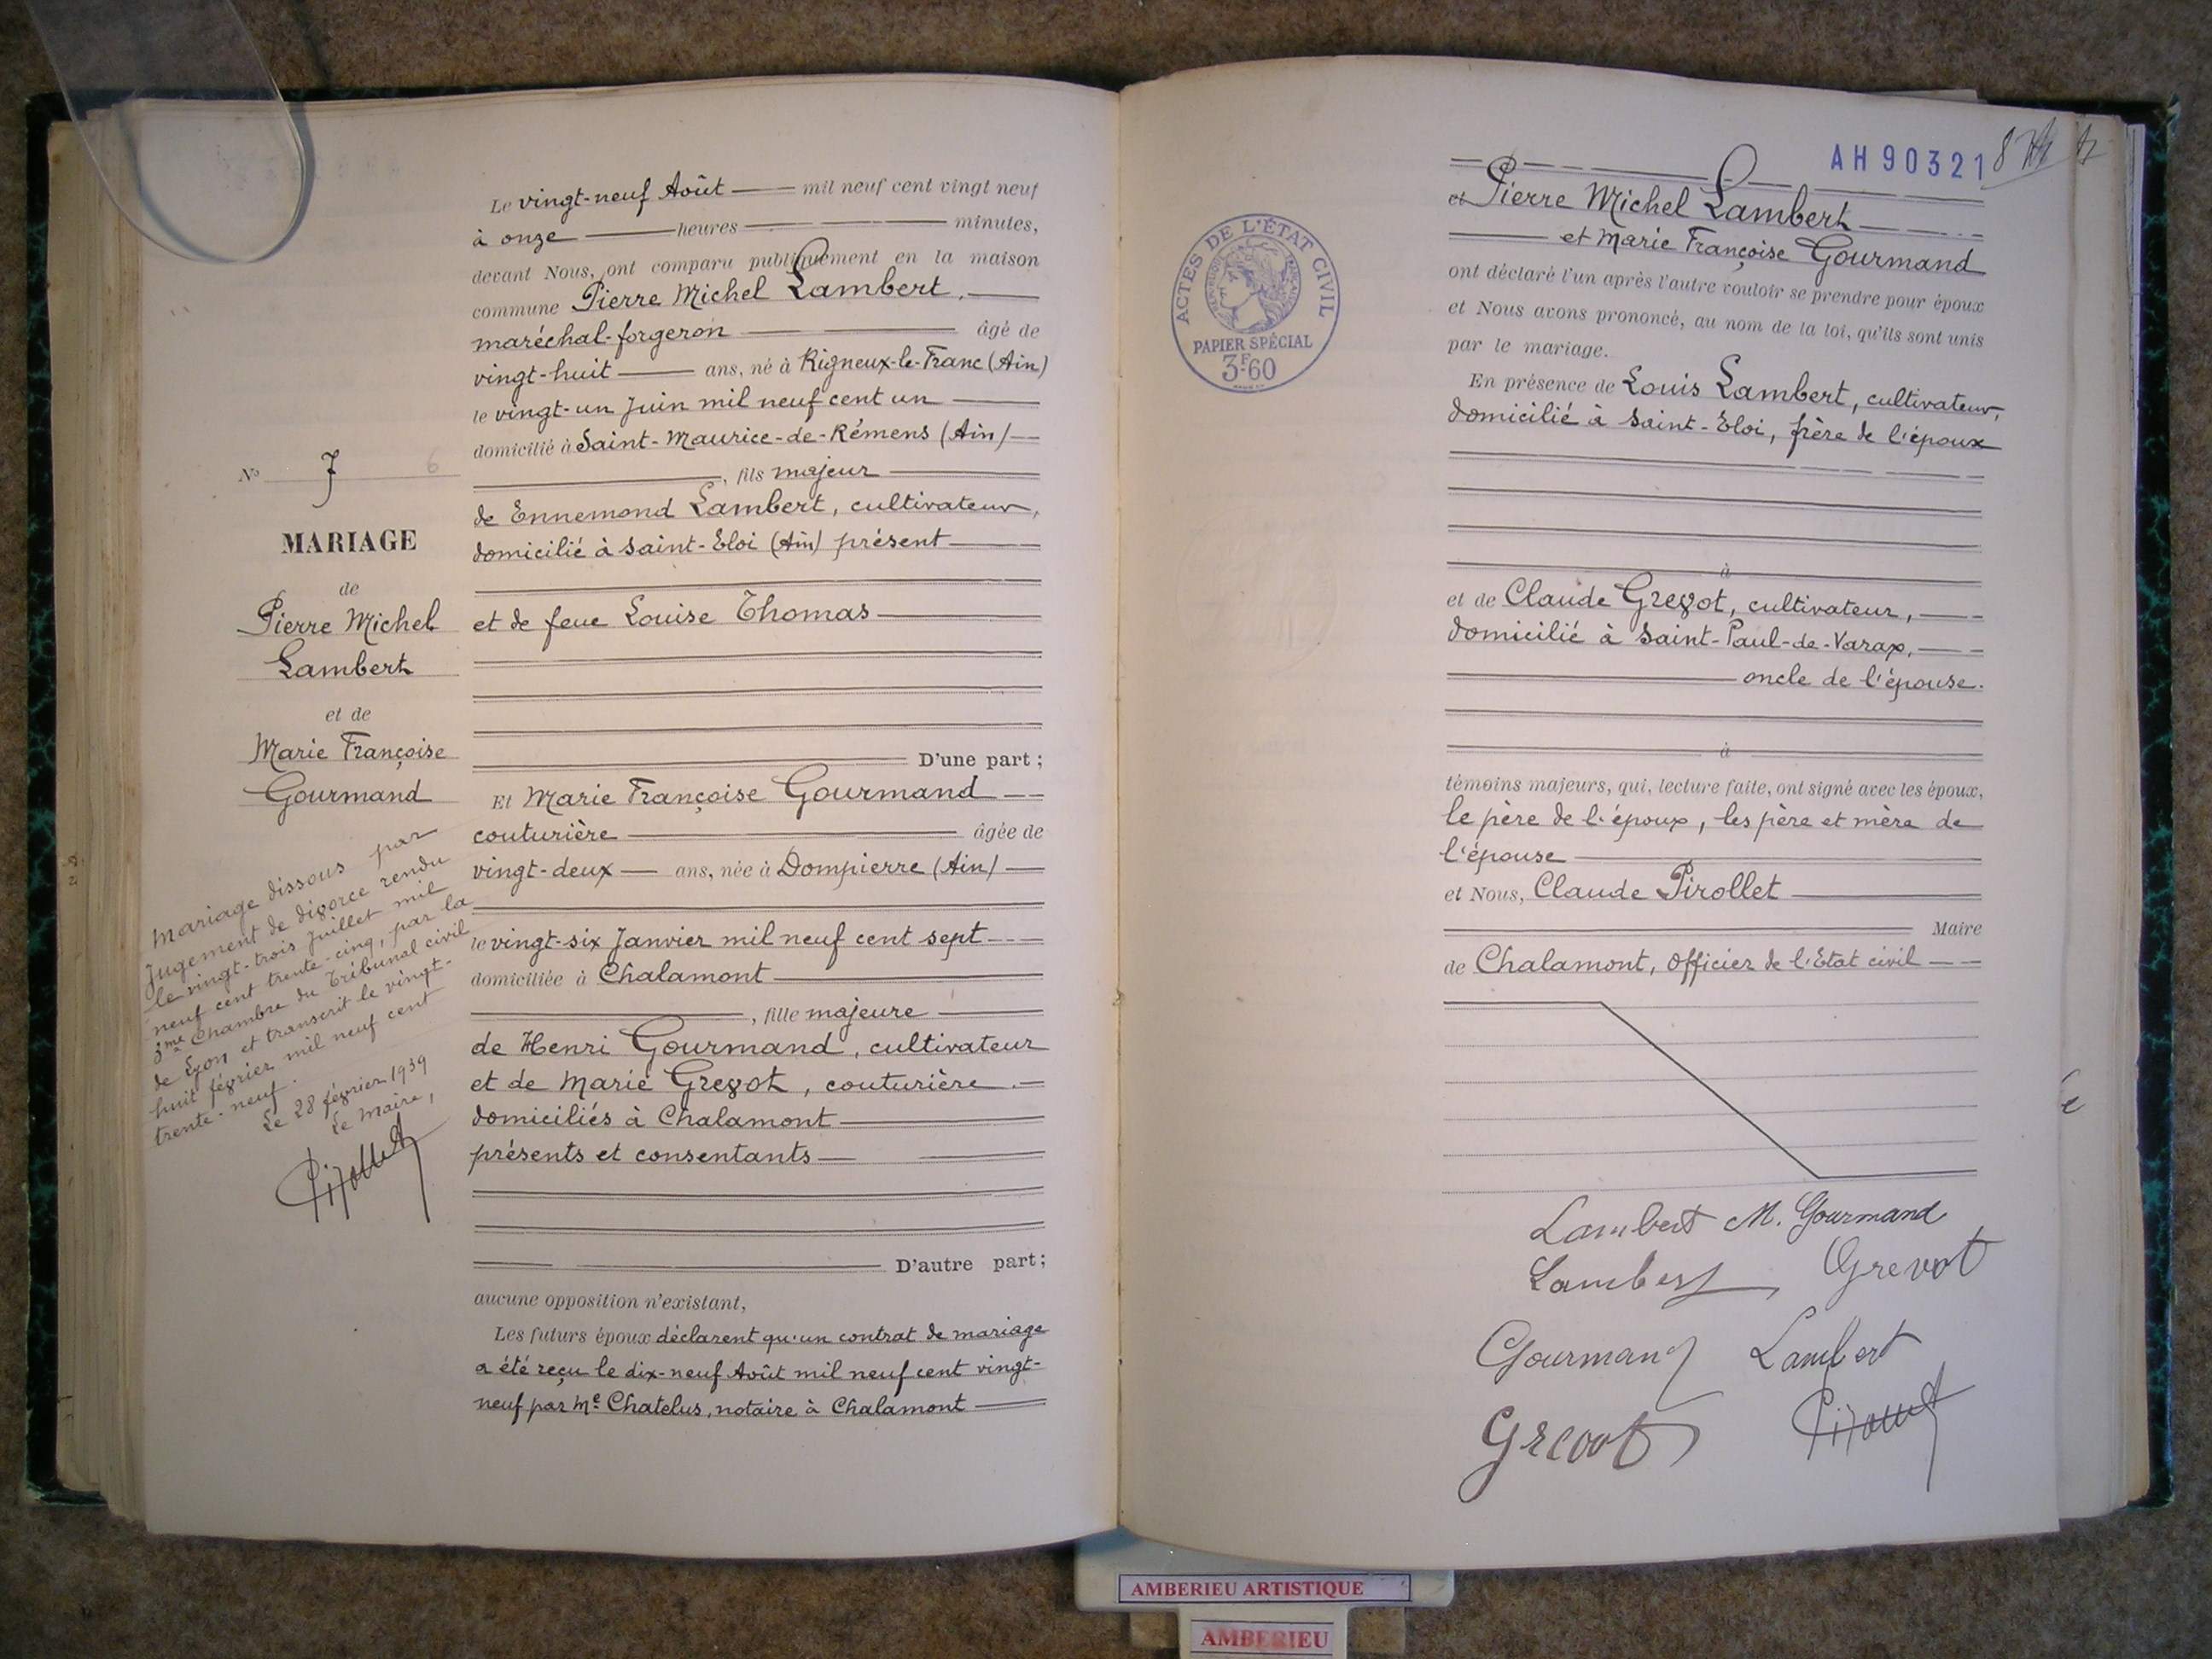 Le vingt-neuf Août mil neuf cent vingt neuf
à onze heures minutes,
devant Nous, ont comparu publiquement en la maison
commune Pierre Michel Lambert,
maréchal-forgeron âgé de
vingt-huit ans, né à Rigneux-le-Franc (Ain)
le vingt-un Juin mil neuf cent un
domicilié à Saint-Maurice-de-Rémens (Ain)
, fils majeur
de Ennemond Lambert, cultivateur,
domicilié à Saint-Eloi (Ain) présent
et de feue Louise Thomas
D'une part ;
Et Marie Françoise Gourmand
couturière âgée de
vingt-deux ans, née à Dompierre (Ain)
le vingt-six Janvier mil neuf cent sept
domiciliée à Chalamont
, fille majeure
de Henri Gourmand, cultivateur
et de Marie Grevot, couturière
domiciliés à Chalamont
présents et consentants
D'autre part ;
aucune opposition n'existant,
Les futurs époux déclarent qu'un contrat de mariage
a été reçu le dix-neuf Août mil neuf cent vingt-
neuf par Me Chatelus, notaire à Chalamont
No 7 6
MARIAGE
de
Pierre Michel
Lambert
et de
Marie Françoise
Gourmand
Mariage dissous par
Jugement de divorce rendu
le vingt-trois Juillet mil
neuf cent trente-cinq, par la
3me Chambre du Tribunal civil
de Lyon et transcrit le vingt-
huit février mil neuf cent
trente-neuf.
Le 28 février 1939
Le Maire,
Pirollet
AH90321
ACTES DE L'ÉTAT CIVIL
RÉPUBLIQUE FRANÇAISE
PAPIER SPÉCIAL
3F60
et Pierre Michel Lambert
et Marie Françoise Gourmand
ont déclaré l'un après l'autre vouloir se prendre pour époux
et Nous avons prononcé, au nom de la loi, qu'ils sont unis
par le mariage.
En présence de Louis Lambert, cultivateur,
domicilié à Saint-Eloi, frère de l'époux
à
et de Claude Grevot, cultivateur,
domicilié à Saint-Paul-de-Varax,
oncle de l'épouse.
à
témoins majeurs, qui, lecture faite, ont signé avec les époux,
le père de l'époux, les père et mère de
l'épouse
et Nous, Claude Pirollet
Maire
de Chalamont, Officier de l'Etat civil
Lambert M. Gourmand
Lambert Grevot
Gourmand Lambert
Grevot Pirollet
AMBERIEU ARTISTIQUE
AMBERIEU